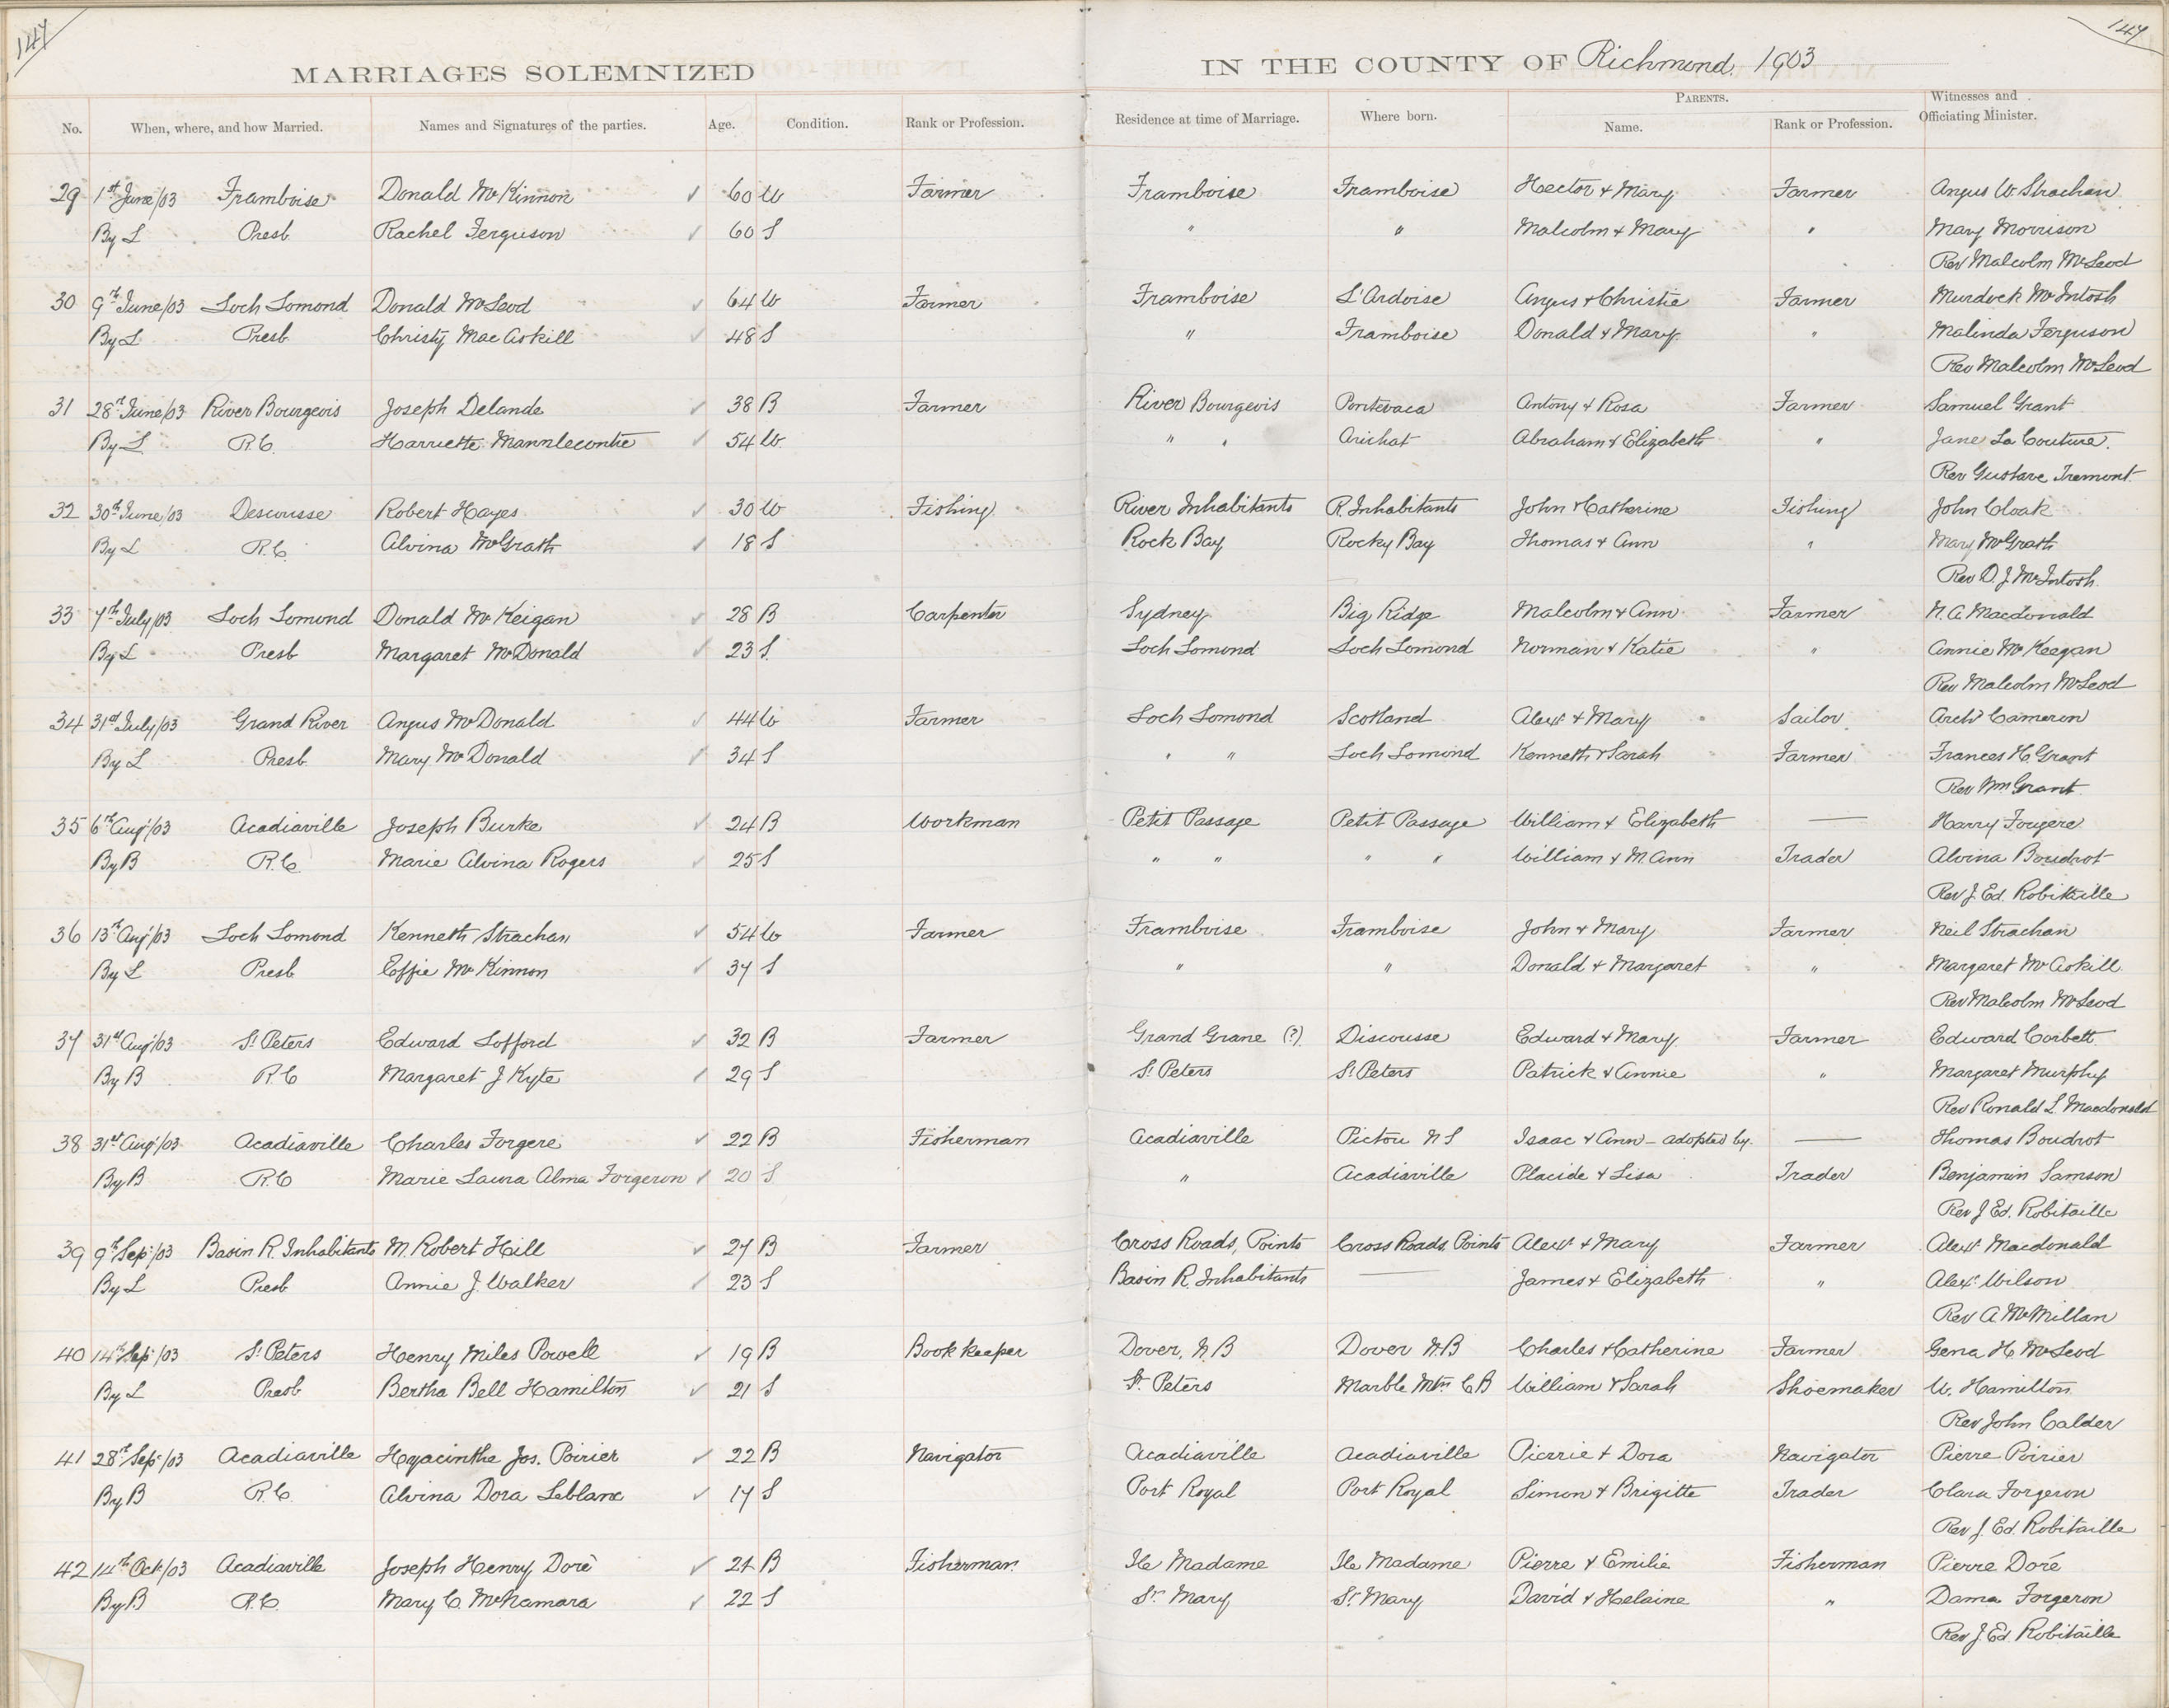 147
147
MARRIAGES SOLEMNIZED IN THE COUNTY OF Richmond. 1903
No. When, where, and how Married. Names and Signatures of the parties. Age. Condition. Rank or Profession. Residence at time of Marriage. Where born. PARENTS. Name. Rank or Profession. Witnesses and Officiating Minister.
29 1st June/03 Framboise Donald McKinnon ✓ 60 W Farmer Framboise Framboise Hector & Mary Farmer Angus W. Strachan
By L Presb Rachel Ferguson ✓ 60 S " " Malcolm & Mary " Mary Morrison
Rev Malcolm McLeod
30 9th June/03 Loch Lomond Donald McLeod ✓ 64 W Farmer Framboise L'Ardoise Angus & Christie Farmer Murdock McIntosh
By L Presb Christy MacAskill ✓ 48 S " Framboise Donald & Mary " Malinda Ferguson
Rev Malcolm McLeod
31 28th June/03 River Bourgeois Joseph Delande ✓ 38 B Farmer River Bourgeois Antony & Rosa Farmer Samuel Grant
By L R.C. Harriette ✓ 54 W. " " Arichat Abraham & Elizabeth " Jane La Couture.
Rev Gustave Tremont.
32 30th June/03 Descousse Robert Hayes ✓ 30 W Fishing River Inhabitants R. Inhabitants John & Catherine Fishing John Cloak
By L R.C. Alvina McGrath ✓ 18 S Rock Bay Rocky Bay Thomas & Ann " Mary McGrath
Rev D. J. McIntosh.
33 7th July/03 Loch Lomond Donald McKeigan ✓ 28 B Carpenter Sydney Big Ridge Malcolm & Ann Farmer N. A. Macdonald
By L Presb Margaret McDonald ✓ 23 S. Loch Lomond Loch Lomond Norman & Katie " Annie McKeegan
Rev Malcolm McLeod
34 31st July/03 Grand River Angus McDonald ✓ 44 W Farmer Loch Lomond Scotland Alexr & Mary Sailor Archd Cameron
By L Presb. Mary McDonald ✓ 34 S " " Loch Lomond Kenneth & Sarah Farmer Frances H. Grant
Rev Wm Grant.
35 6th Aug/03 Acadiaville Joseph Burke ✓ 24 B Workman Petit Passage Petit Passage William & Elizabeth — Harry Fougere
By B R.C. Marie Alvina Rogers ✓ 25 S " " " " William & M. Ann Trader Alvina Boudrot
Rev J. Ed. Robitaille
36 13th Aug/03 Loch Lomond Kenneth Strachan ✓ 54 W Farmer Framboise Framboise John & Mary Farmer Neil Strachan
By L Presb Effie McKinnon ✓ 37 S " " Donald & Margaret " Margaret McAskill
Rev Malcolm McLeod
37 31st Aug/03 St Peters Edward Lofford ✓ 32 B Farmer Grand Grane (?) Discousse Edward & Mary Farmer Edward Corbett
By B R.C Margaret J Kyte ✓ 29 S St Peters St Peters Patrick & Annie " Margaret Murphy
Rev Ronald L. Macdonald
38 31st Aug/03 Acadiaville Charles Forgere ✓ 22 B Fisherman Acadiaville Pictou N S Isaac & Ann - adopted by. — Thomas Boudrot
By B R.C Marie Laura Alma Forgeron ✓ 20 S " Acadiaville Placide & Lisa Trader Benjamin Samson
Rev J Ed. Robitaille
39 9th Sep/03 Basin R. Inhabitants M. Robert Hill ✓ 27 B Farmer Cross Roads, Points Cross Roads, Points Alexr & Mary Farmer Alexr Macdonald
By L Presb Annie J. Walker ✓ 23 S Basin R. Inhabitants — James & Elizabeth " Alexr Wilson
Rev A. McMillan
40 14th Sep/03 St Peters Henry Miles Powell ✓ 19 B Bookkeeper Dover, N B Dover N.B Charles & Catherine Farmer Gena H. McLeod
By L Presb Bertha Bell Hamilton ✓ 21 S St. Peters Marble Mtn C B William & Sarah Shoemaker W. Hamilton
Rev John Calder
41 28th Sep/03 Acadiaville Hyacinthe Jos. Poirier ✓ 22 B Navigator Acadiaville Acadiaville Pierrie & Dora Navigator Pierre Poirier
By B R.C. Alvina Dora Leblanc ✓ 17 S Port Royal Port Royal Simon & Brigitte Trader Clara Forgeron
Rev J. Ed Robitaille
42 14th Oct/03 Acadiaville Joseph Henry Doré ✓ 21 B Fisherman Ile Madame Ile Madame Pierre & Emilie Fisherman Pierre Doré
By B R.C. Mary C. McNamara ✓ 22 S St. Mary St. Mary David & Helaine " Dama Forgeron
Rev J. Ed. Robitaille